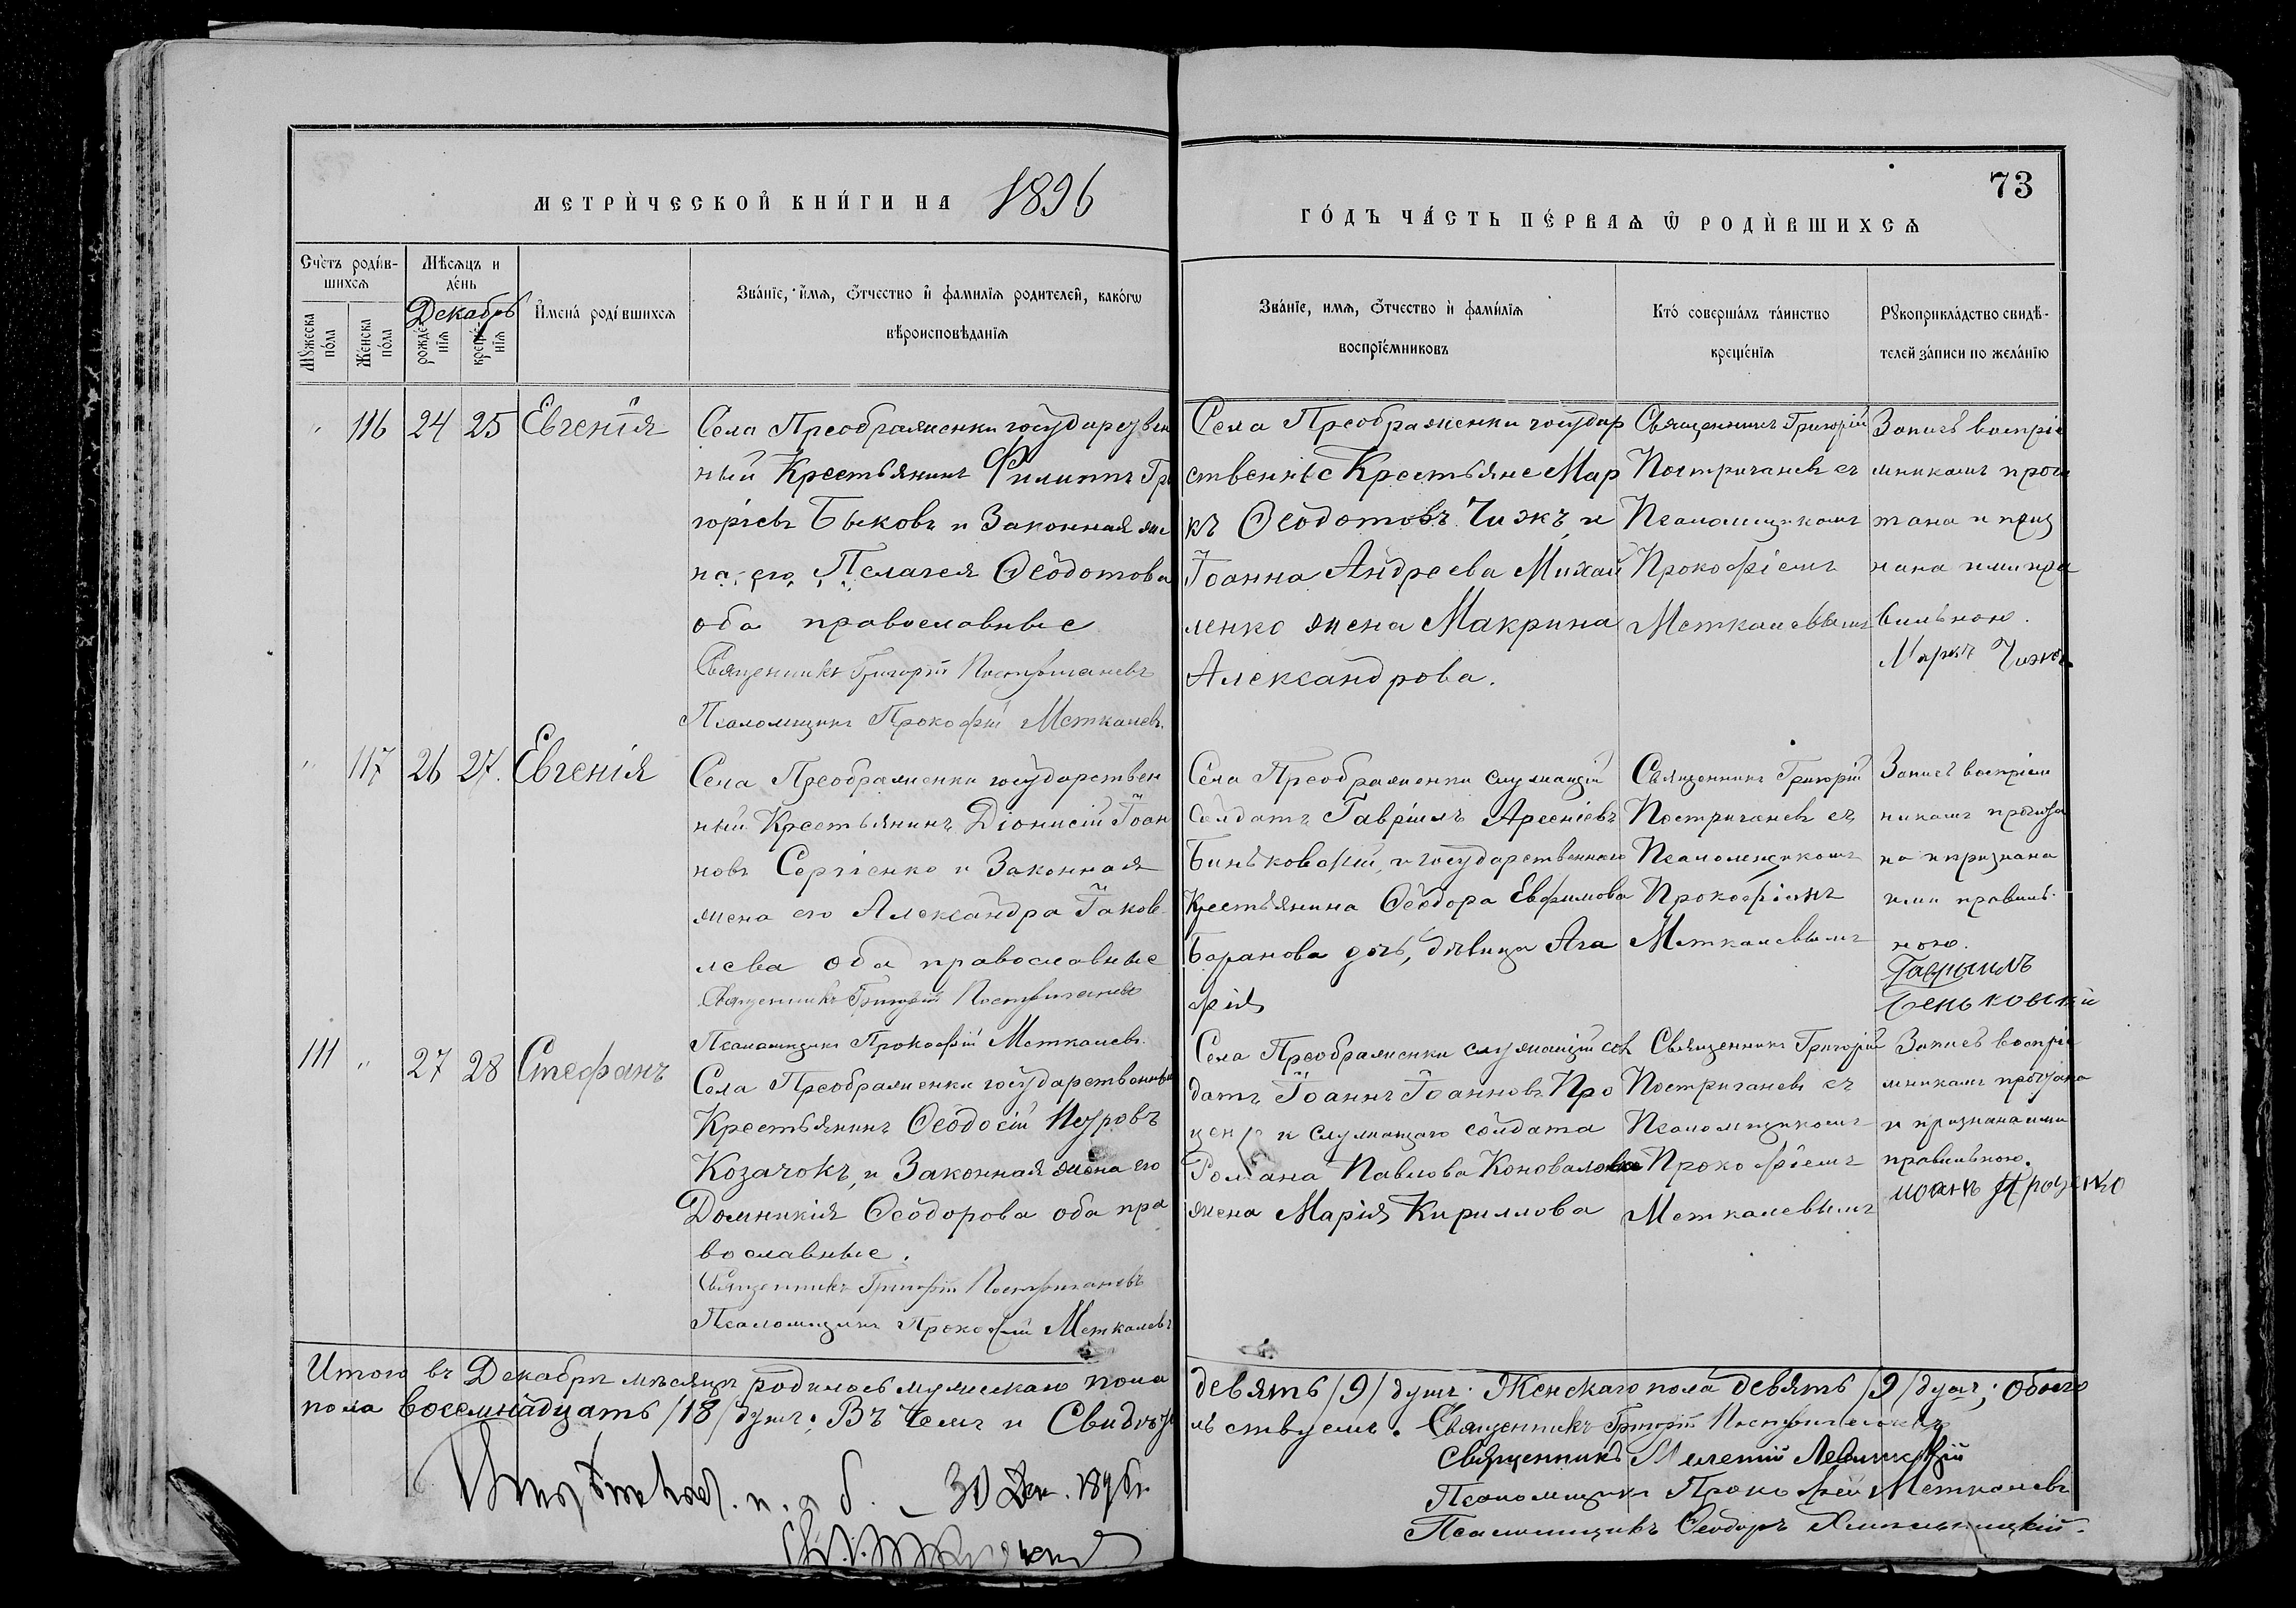 МЕТРИЧЕСКОЙ КНИГИ НА 1896
ГОДЪ ЧАСТЬ ПЕРВАЯ Ѡ РОДИВШИХСЯ
73
Счетъ родив-
шихся
Мужеска пола
Женска пола
Мѣсяцъ и
день
Декабрь
рожде-
нія
креще-
нія
Имена родившихся
Званіе, имя, ѿчество и фамилія родителей, какогѡ
вѣроисповѣданія
Званіе, имя, ѿчество и фамилія
воспріемниковъ
Кто совершалъ таинство
крещенія
Рукоприкладство свидѣ-
телей записи по желанію
116 24 25 Евгенія
Села Преображенки государствен
ный Крестьянинъ Филиппъ Гри
горіевъ Быковъ и Законная же
на его Пелагея Ѳеодотова
оба православные
Священникъ Григорій Постригачевъ
Псаломщикъ Прокофій Меткалевъ
Села Преображенки государ
ственные Крестьяне Мар
къ Ѳеодотовъ Чижъ, и
Іоанна Андреева Михай
ленко жена Макрина
Александрова.
Священникъ Григорій
Постригачевъ съ
Псаломщикомъ
Прокофіемъ
Меткалевымъ
Запись воспріе
мникамъ прочи
тана и приз
нана ими пра
вильною.
Маркъ Чижъ
117 26 27. Евгенія
Села Преображенки государствен
ный Крестьянинъ Діонисій Іоан
новъ Сергіенко и Законная
жена его Александра Іаков
лева оба православные
Священникъ Григорій Постригачевъ
Псаломщикъ Прокофій Меткалевъ.
Села Преображенки служащій
Солдатъ Гавріилъ Арсеніевъ
Биньковскій, и государственнаго
Крестьянина Ѳеодора Евфимова
Баранова дочь, дѣвица Ага
фія
Священникъ Григорій
Постригачевъ съ
Псаломщикомъ
Прокофіемъ
Меткалевымъ
Запись воспріем
никамъ прочита
на и признана
ими правиль
ною.
Гавриилъ
Беньковский
111 " 27 28 Стефанъ
Села Преображенки государственный
Крестьянинъ Ѳеодосій Петровъ
Козачокъ, и Законная жена его
Домникія Ѳеодорова оба пра
вославные.
Священникъ Григорій Постригачевъ
Псаломщикъ Прокофій Меткалевъ
Села Преображенки служащій сол
датъ Іоаннъ Іоанновъ Про
ценко и служащаго солдата
Романа Павлова Коновалова
жена Марія Кириллова
Священникъ Григорій
Постригачевъ съ
Псаломщикомъ
Прокофіемъ
Меткалевымъ
Запись воспріе
мникамъ прочитана
и признана ими
правильною.
Иоанъ Проценко
Итого въ Декабрѣ мѣсяцѣ родилось мужескаго пола девять /9/ душъ. Женскаго пола девять /9/ душъ; обоего
пола восемнадцать /18/ душъ; Въ чемъ и Свидѣтельствуемъ. Священникъ Григорій Постригачевъ
Священникъ Мелетій Левицкій
Псаломщикъ Прокофій Меткалевъ
Псаломщикъ Ѳеодоръ Хмельницкій.
30 Дек. 1896 г.